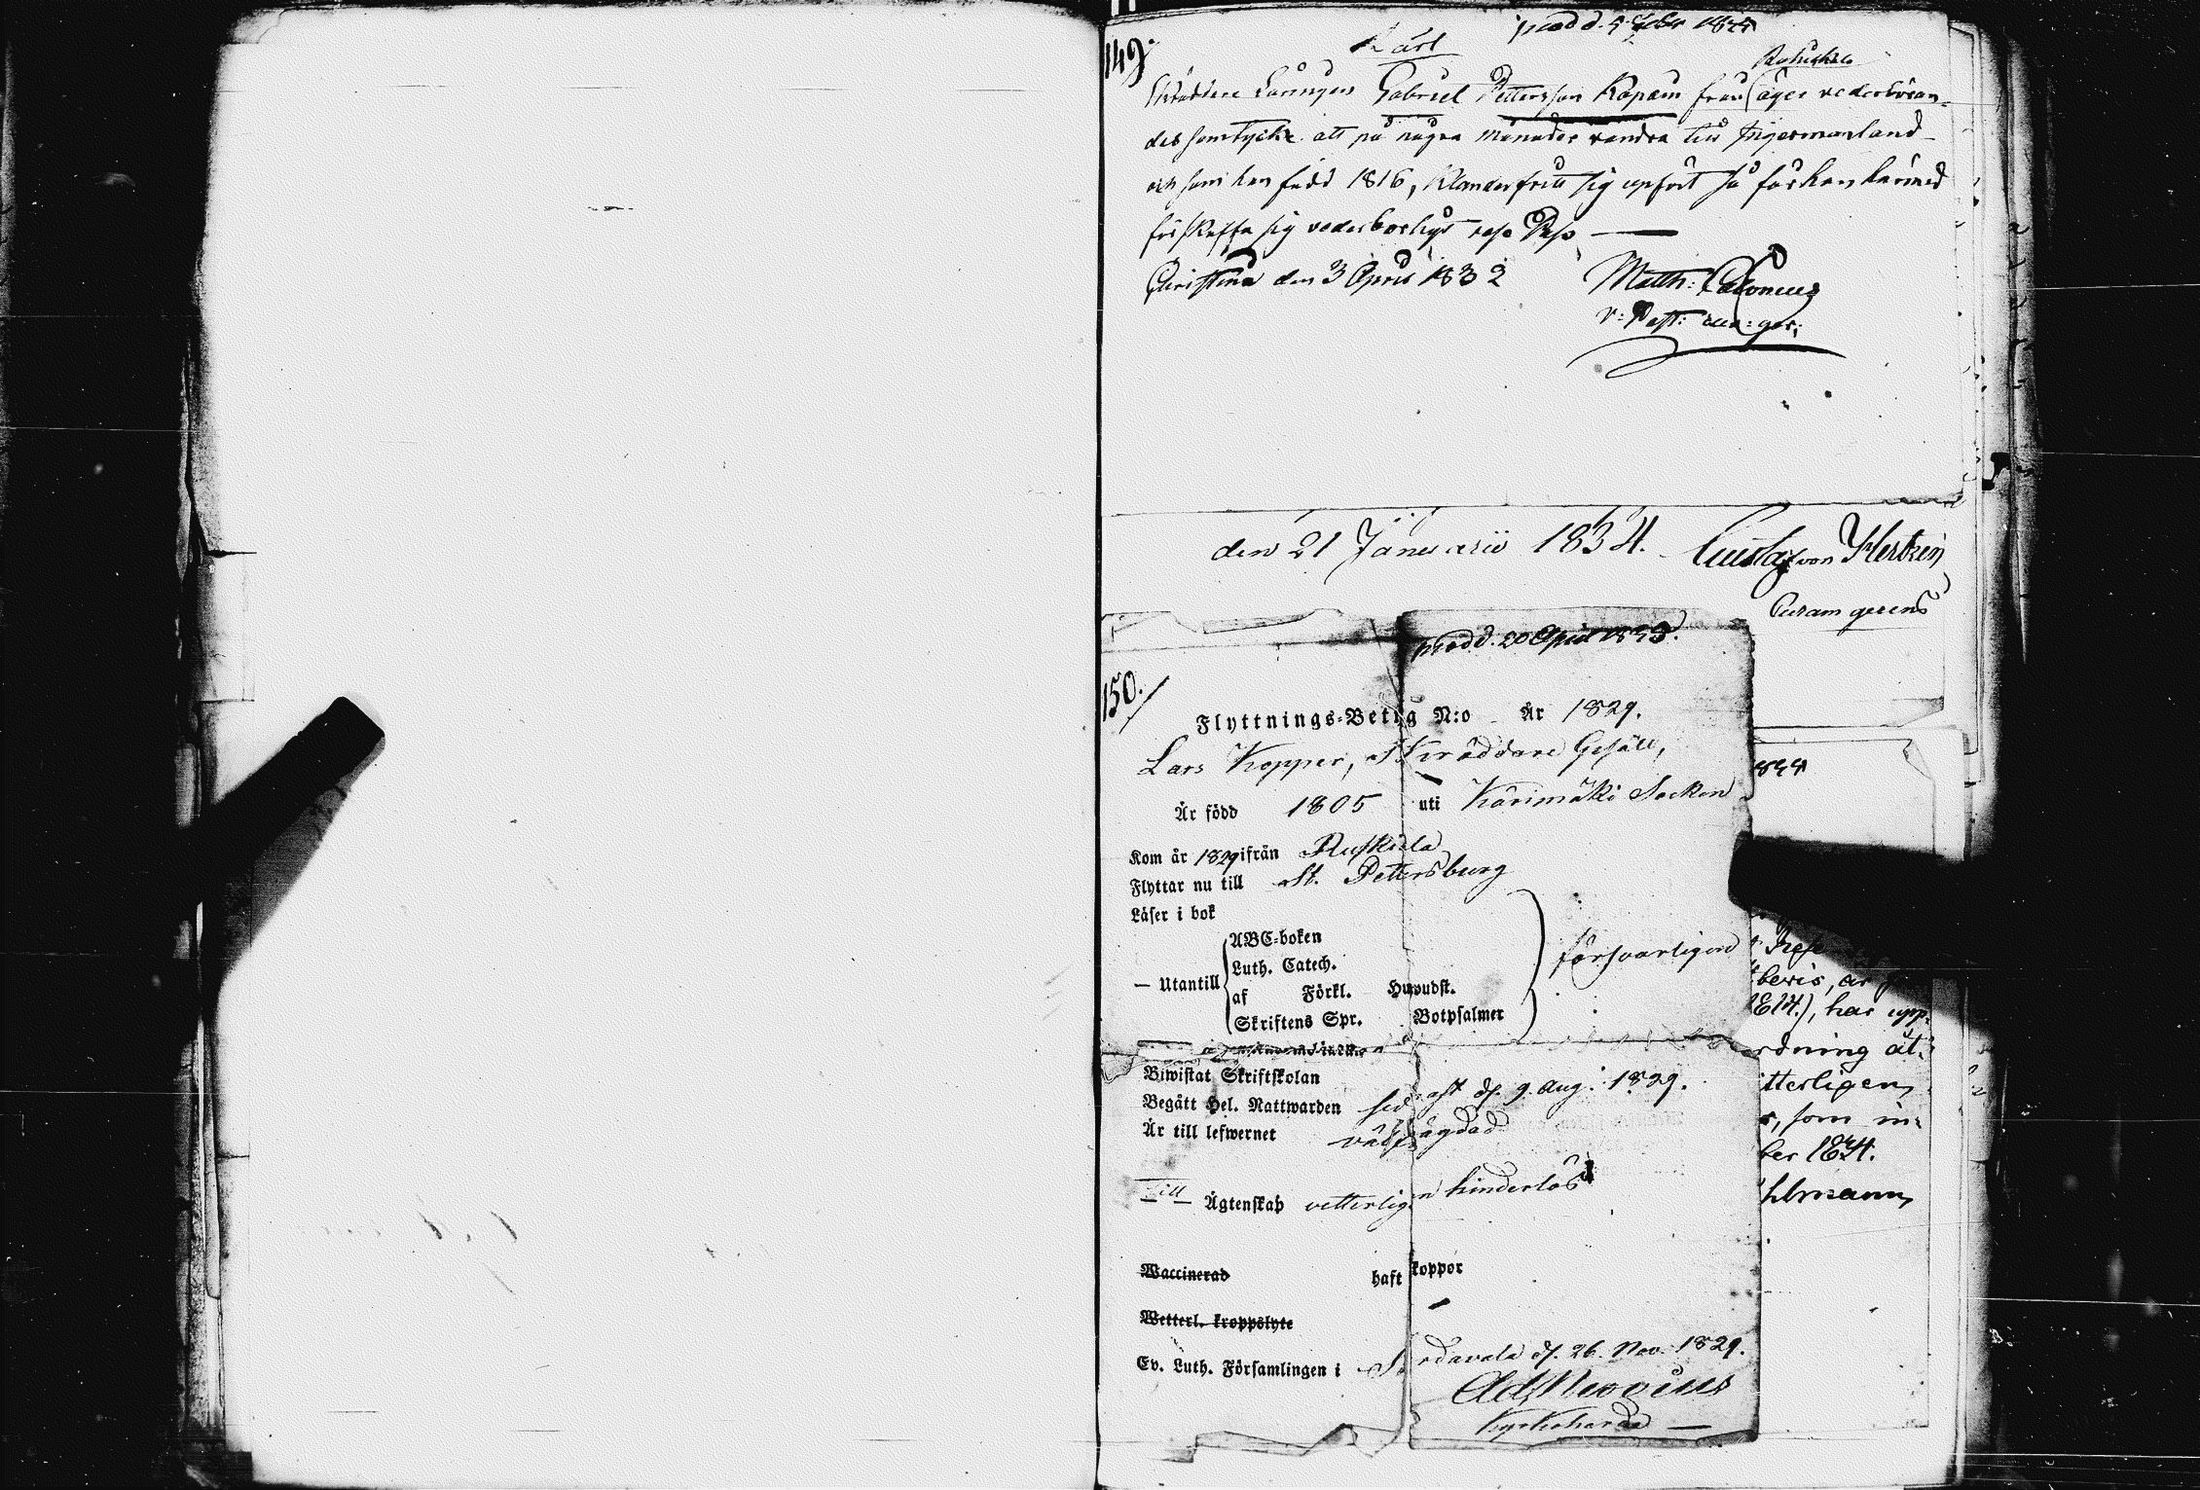 149.
Karl
prod d. 5 Febr 1834
Skräddare Läringen Gabriel Pettersson Kapain från äger vederböran-
des samtycke att på några månader vandra till Ingermanland
och som han född 1816, klanderfritt sig upfört så får han härmed
förskaffa sig vederbörligt rese Pass
Christina den 3 April 1832
Matth:
v: Past:
den 21 Januarii 1834. Gustaf von Hertzen
Curam gerens
prod d. 20 April 1833.
150.
Flyttnings-Betyg N:o År 1829.
Lars Kopper, Skräddare Gesäll,
Är född 1805 uti Kärimäki Socken
Kom år 1829 ifrån Ruskiala
Flyttar nu till St. Petersburg
Läser i bok
— Utantill
ABC-boken
Luth. Catech.
af Förkl. Huvudst.
Skriftens Spr. Botpsalmer
försvarligen
Biwistat Skriftskolan
Begått Hel. Nattwarden sednast d. 9. Aug: 1829.
Är till lefwernet välfrägdad
Till Ägtenskap vetterligen hinderlös
Waccinerad haft koppor
Wetterl. kroppslyte
Ev. Luth. Församlingen i Sordavala d. 26. Nov. 1829.
Ad. Neovius
Kyrkoherde
1834
beris, är
1814.), har upp-
rdning åt-
tterligen
, som in-
ber 1834.
hlmann